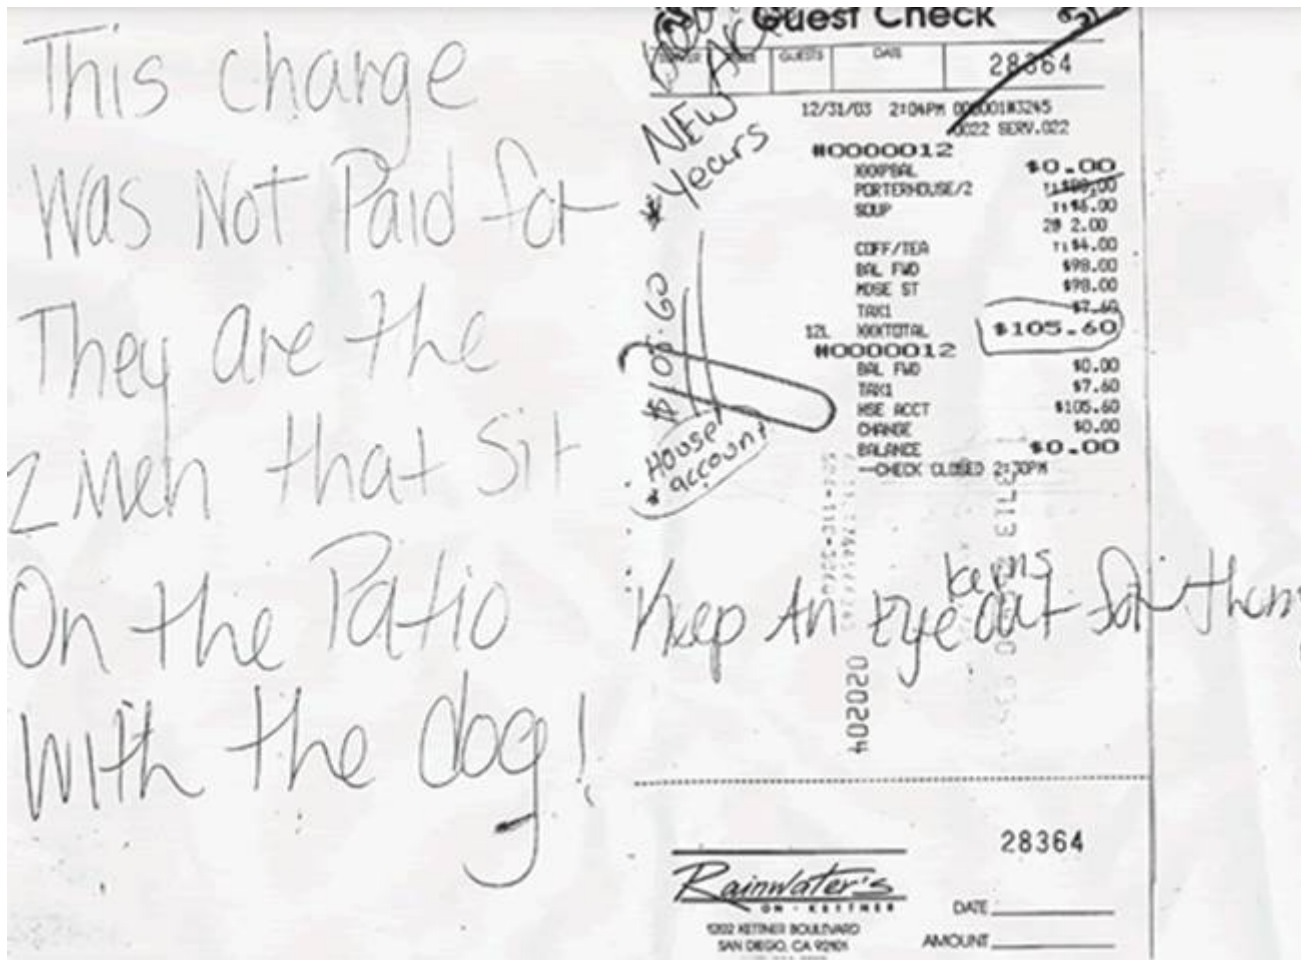 This charge
Was Not Paid for
They are the
2 men that sit
On the Patio
with the dog!
Guest Check
GUESTS DATE
28364
NEW
Years
12/31/03 2:04PM
0022 SERV.022
#0000012
XXXPBAL $0.00
PORTERHOUSE/2
SOUP $6.00
2@ 2.00
COFF/TEA $4.00
BAL FWD $98.00
MDSE ST $98.00
TAX1 $7.60
12L XXXTOTAL $105.60
#0000012
BAL FWD $0.00
TAX1 $7.60
HSE ACCT $105.60
CHANGE $0.00
BALANCE $0.00
--CHECK CLOSED 2:30PM
$105.60
* House
account
Keep An Eye out for them
020204
28364
Rainwater's
ON • KETTNER
1202 KETTNER BOULEVARD
SAN DIEGO, CA 92101
DATE
AMOUNT